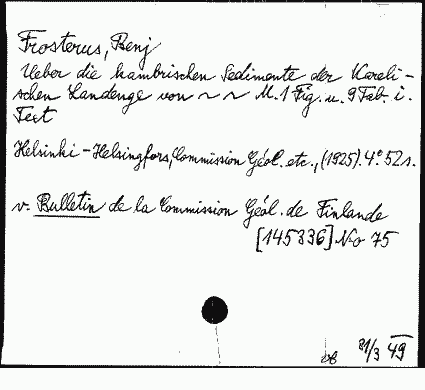 Frosterus, Benj
Ueber die kambrischen Sedimente der Kareli-
schen Landenge von ~ ~ M. 1 Fig. u. 9 Tab. i.
Text
Helsinki-Helsingfors, Commission Géol. etc., (1925). 4° 52 s.
v. Bulletin de la Commission Géol. de Finlande
[145836] No 75
31/3 49